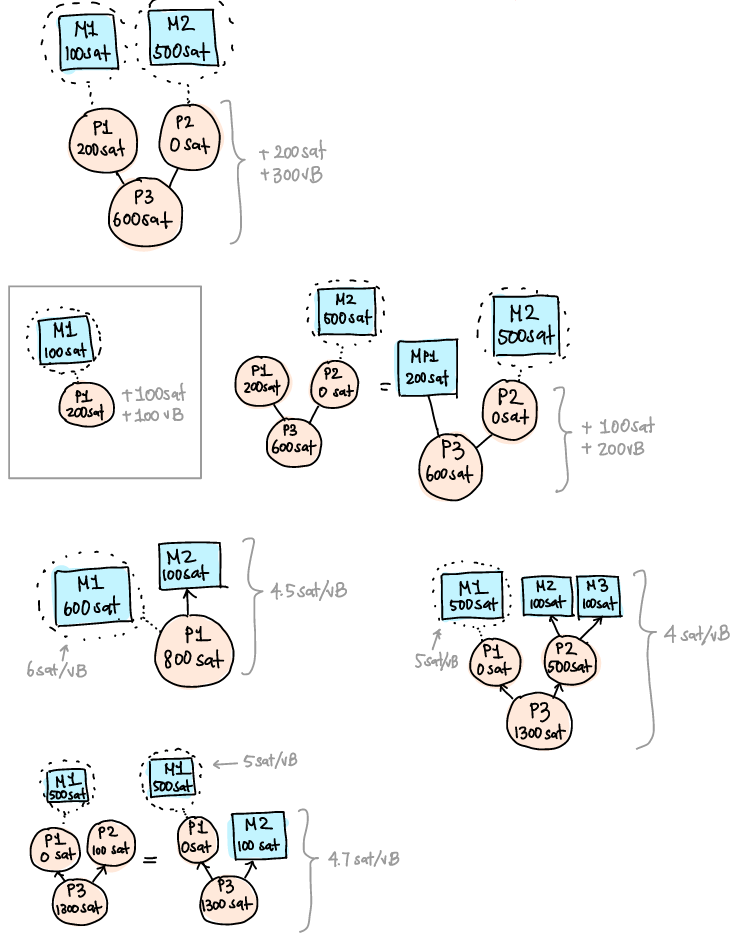 M1
100sat
M2
500sat
P1
200sat
P2
0 sat
P3
600sat
+ 200sat
+ 300vB
M1
100sat
P1
200sat
+ 100sat
+ 100 vB
M2
500sat
P1
200sat
P2
0 sat
P3
600sat
=
MP1
200sat
M2
500sat
P2
0sat
P3
600sat
+ 100sat
+ 200vB
M1
600sat
M2
100sat
P1
800 sat
4.5sat/vB
6sat/vB
M1
500sat
M2
100sat
M3
100sat
P1
0 sat
P2
500sat
P3
1300 sat
5sat/vB
4 sat/vB
M1
500sat
P1
0 sat
P2
100 sat
P3
1300sat
=
M1
500sat
5sat/vB
P1
0sat
M2
100 sat
P3
1300sat
4.7sat/vB